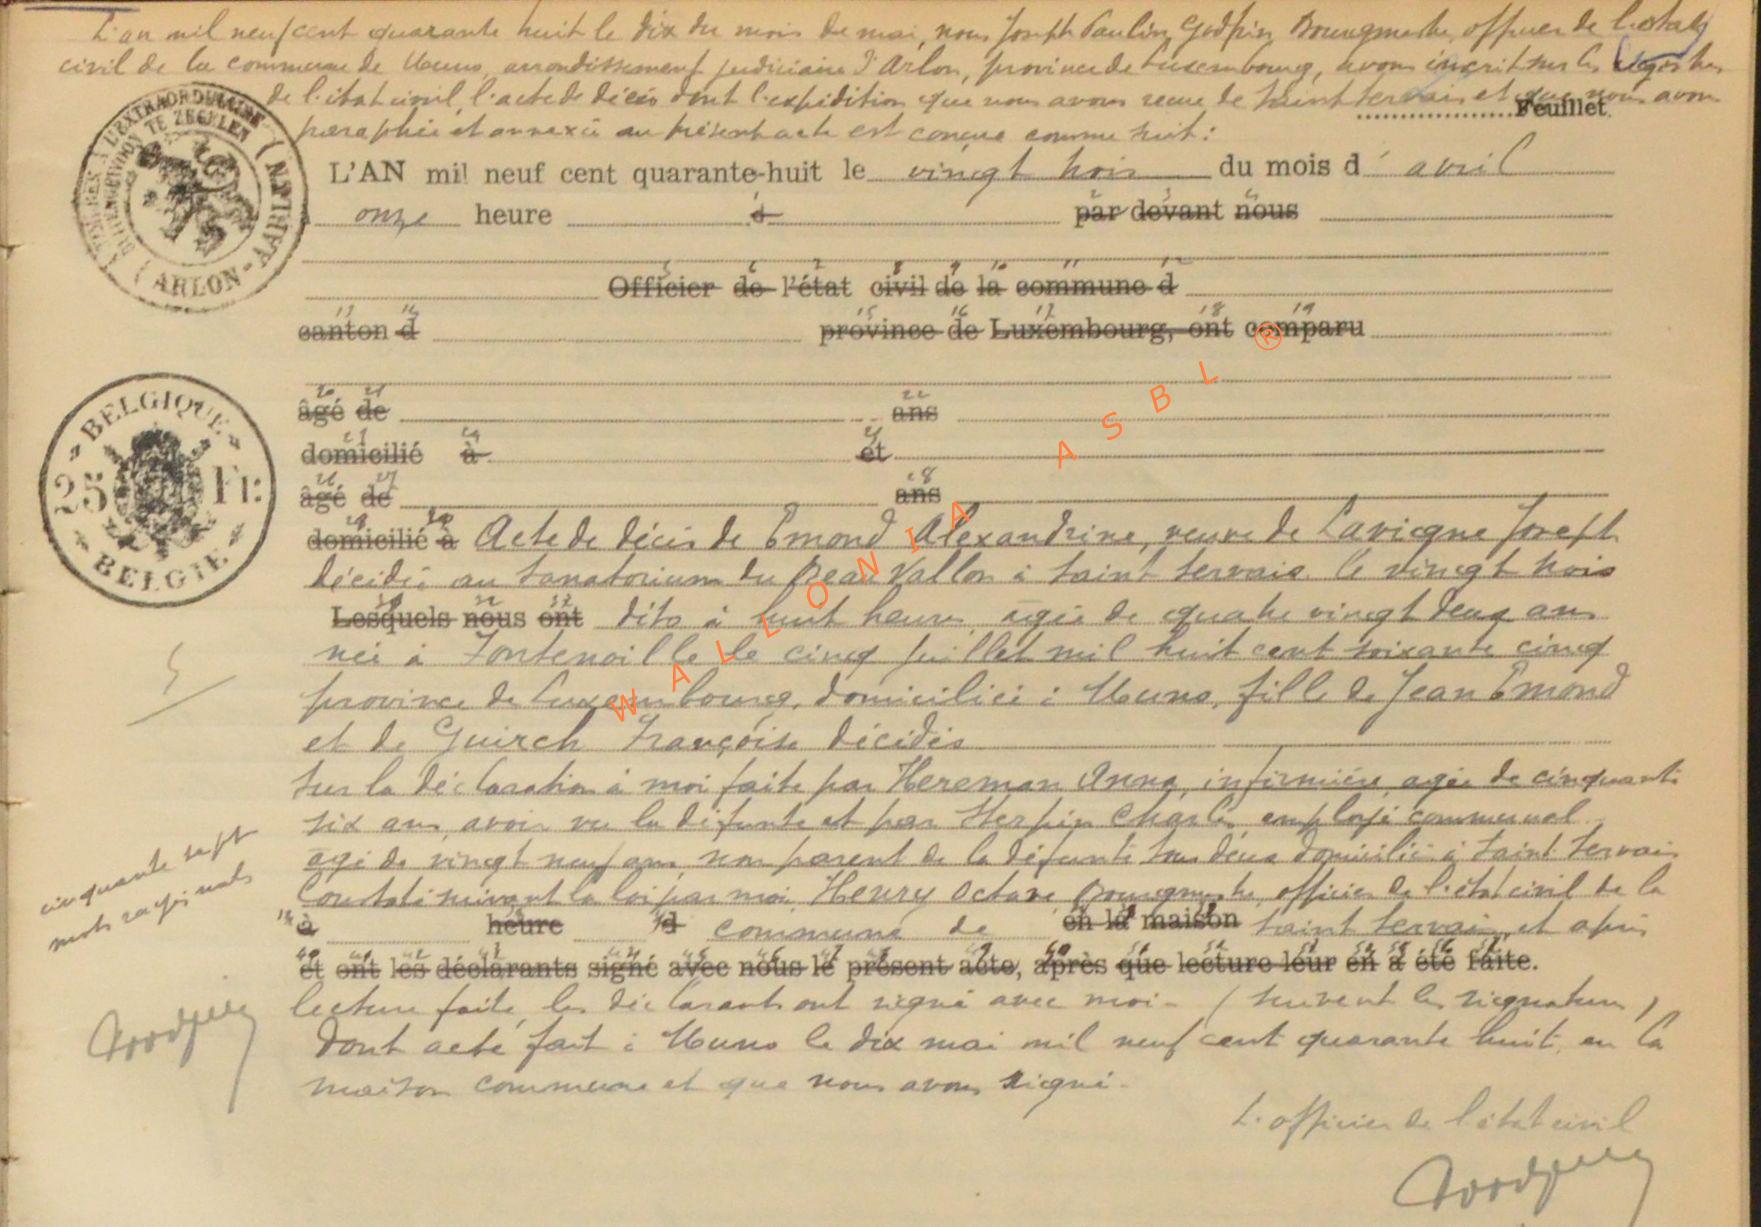 L'an mil neuf cent quarante huit le dix du mois de mai, nous Joseph Paulin Godfrin Bourgmestre, officier de l'état
civil de la commune de Muno, arrondissement judiciaire d'Arlon, province de Luxembourg, avons inscrit sur les registres
de l'état civil, l'acte de décès dont l'expédition que nous avons reçue de Saint Servais et que nous avons
Feuillet
paraphée et annexée au présent acte est conçue comme suit :
L'AN mil neuf cent quarante-huit le vingt trois du mois d' avril
onze heure à par devant nous
Officier de l'état civil de la commune d
canton d province de Luxembourg, ont comparu
âgé de ans
domicilié à et
âgé de ans
domicilié à Acte de décès de Emond Alexandrine, veuve de Lavigne Joseph
décédée au Sanatorium du Beau Vallon à Saint Servais le vingt trois
Lesquels nous ont dito à huit heures, agée de quatre vingt deux ans
née à Fontenoille le cinq juillet mil huit cent soixante cinq
province de Luxembourg, domiciliée à Muno, fille de Jean Emond
et de Guirch Françoise décédés
sur la déclaration à moi faite par Hereman Anna, infirmière, agée de cinquante
six ans, avoir vu la défunte et par Herpin Charles, employé communal
agé de vingt neuf ans, non parent de la défunte tous deux domiciliés à Saint Servais
Constaté suivant la loi par moi, Henry Octave Bourgmestre, officier de l'état civil de la
à heure d commune de en la maison Saint Servais, et après
et ont les déclarants signé avec nous le présent acte, après que lecture leur en a été faite.
lecture faite, les déclarants ont signé avec moi - (suivent les signatures)
Dont acte fait à Muno le dix mai mil neuf cent quarante huit, en la
maison commune et que nous avons signé -
L'officier de l'état civil
cinquante sept
mots rayés nuls
TIMBRES A L'EXTRAORDINAIRE
BUITENGEWOON TE ZEGELEN
ARLON - AARLEN
BELGIQUE
25 Fr.
BELGIE
WALLONIA ASBL ®